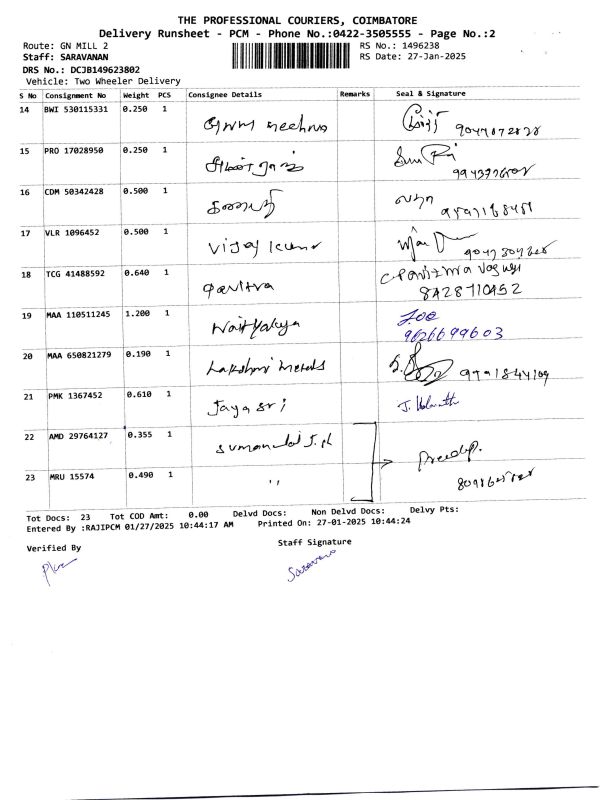 THE PROFESSIONAL COURIERS, COIMBATORE
Delivery Runsheet - PCM - Phone No.:0422-3505555 - Page No.:2
Route: GN MILL 2 RS No.: 1496238
Staff: SARAVANAN RS Date: 27-Jan-2025
DRS No.: DCJB149623802
Vehicle: Two Wheeler Delivery
S No Consignment No Weight PCS Consignee Details Remarks Seal & Signature
14 BWI 530115331 0.250 1
15 PRO 17028950 0.250 1
16 CDM 50342428 0.500 1
17 VLR 1096452 0.500 1 Vijay Kumar
18 TCG 41488592 0.640 1 Pavitra
8428710452
19 MAA 110511245 1.200 1 Joe
9626699603
20 MAA 650821279 0.190 1 Lakshmi metals
21 PMK 1367452 0.610 1 Jayasri
22 AMD 29764127 0.355 1
23 MRU 15574 0.490 1 ''
Tot Docs: 23 Tot COD Amt: 0.00 Delvd Docs: Non Delvd Docs: Delvy Pts:
Entered By :RAJIPCM 01/27/2025 10:44:17 AM Printed On: 27-01-2025 10:44:24
Verified By Staff Signature
Saravanan